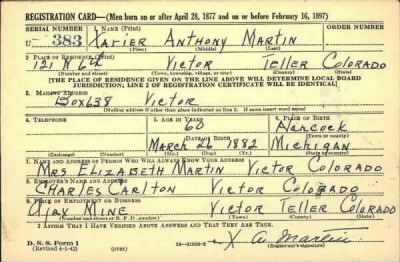 REGISTRATION CARD—(Men born on or after April 28, 1877 and on or before February 16, 1897)
SERIAL NUMBER 1. NAME (Print) ORDER NUMBER
U 383 Xavier Anthony Martin
(First) (Middle) (Last)
2. PLACE OF RESIDENCE (Print)
121 N 6th Victor Teller Colorado
(Number and street) (Town, township, village, or city) (County) (State)
[THE PLACE OF RESIDENCE GIVEN ON THE LINE ABOVE WILL DETERMINE LOCAL BOARD
JURISDICTION; LINE 2 OF REGISTRATION CERTIFICATE WILL BE IDENTICAL]
3. MAILING ADDRESS
Box 638 Victor
[Mailing address if other than place indicated on line 2. If same insert word same]
4. TELEPHONE 5. AGE IN YEARS 6. PLACE OF BIRTH
60 Hancock
DATE OF BIRTH (Town or county)
March 26 1882 Michigan
(Exchange) (Number) (Mo.) (Day) (Yr.) (State or country)
7. NAME AND ADDRESS OF PERSON WHO WILL ALWAYS KNOW YOUR ADDRESS
Mrs Elizabeth Martin Victor Colorado
8. EMPLOYER'S NAME AND ADDRESS
Charles Carlton Victor Colorado
9. PLACE OF EMPLOYMENT OR BUSINESS
Ajax Mine Victor Teller Colorado
(Number and street or R. F. D. number) (Town) (County) (State)
I AFFIRM THAT I HAVE VERIFIED ABOVE ANSWERS AND THAT THEY ARE TRUE.
D. S. S. Form 1
(Revised 4-1-42) (over) X A. Martin
(Registrant's signature)